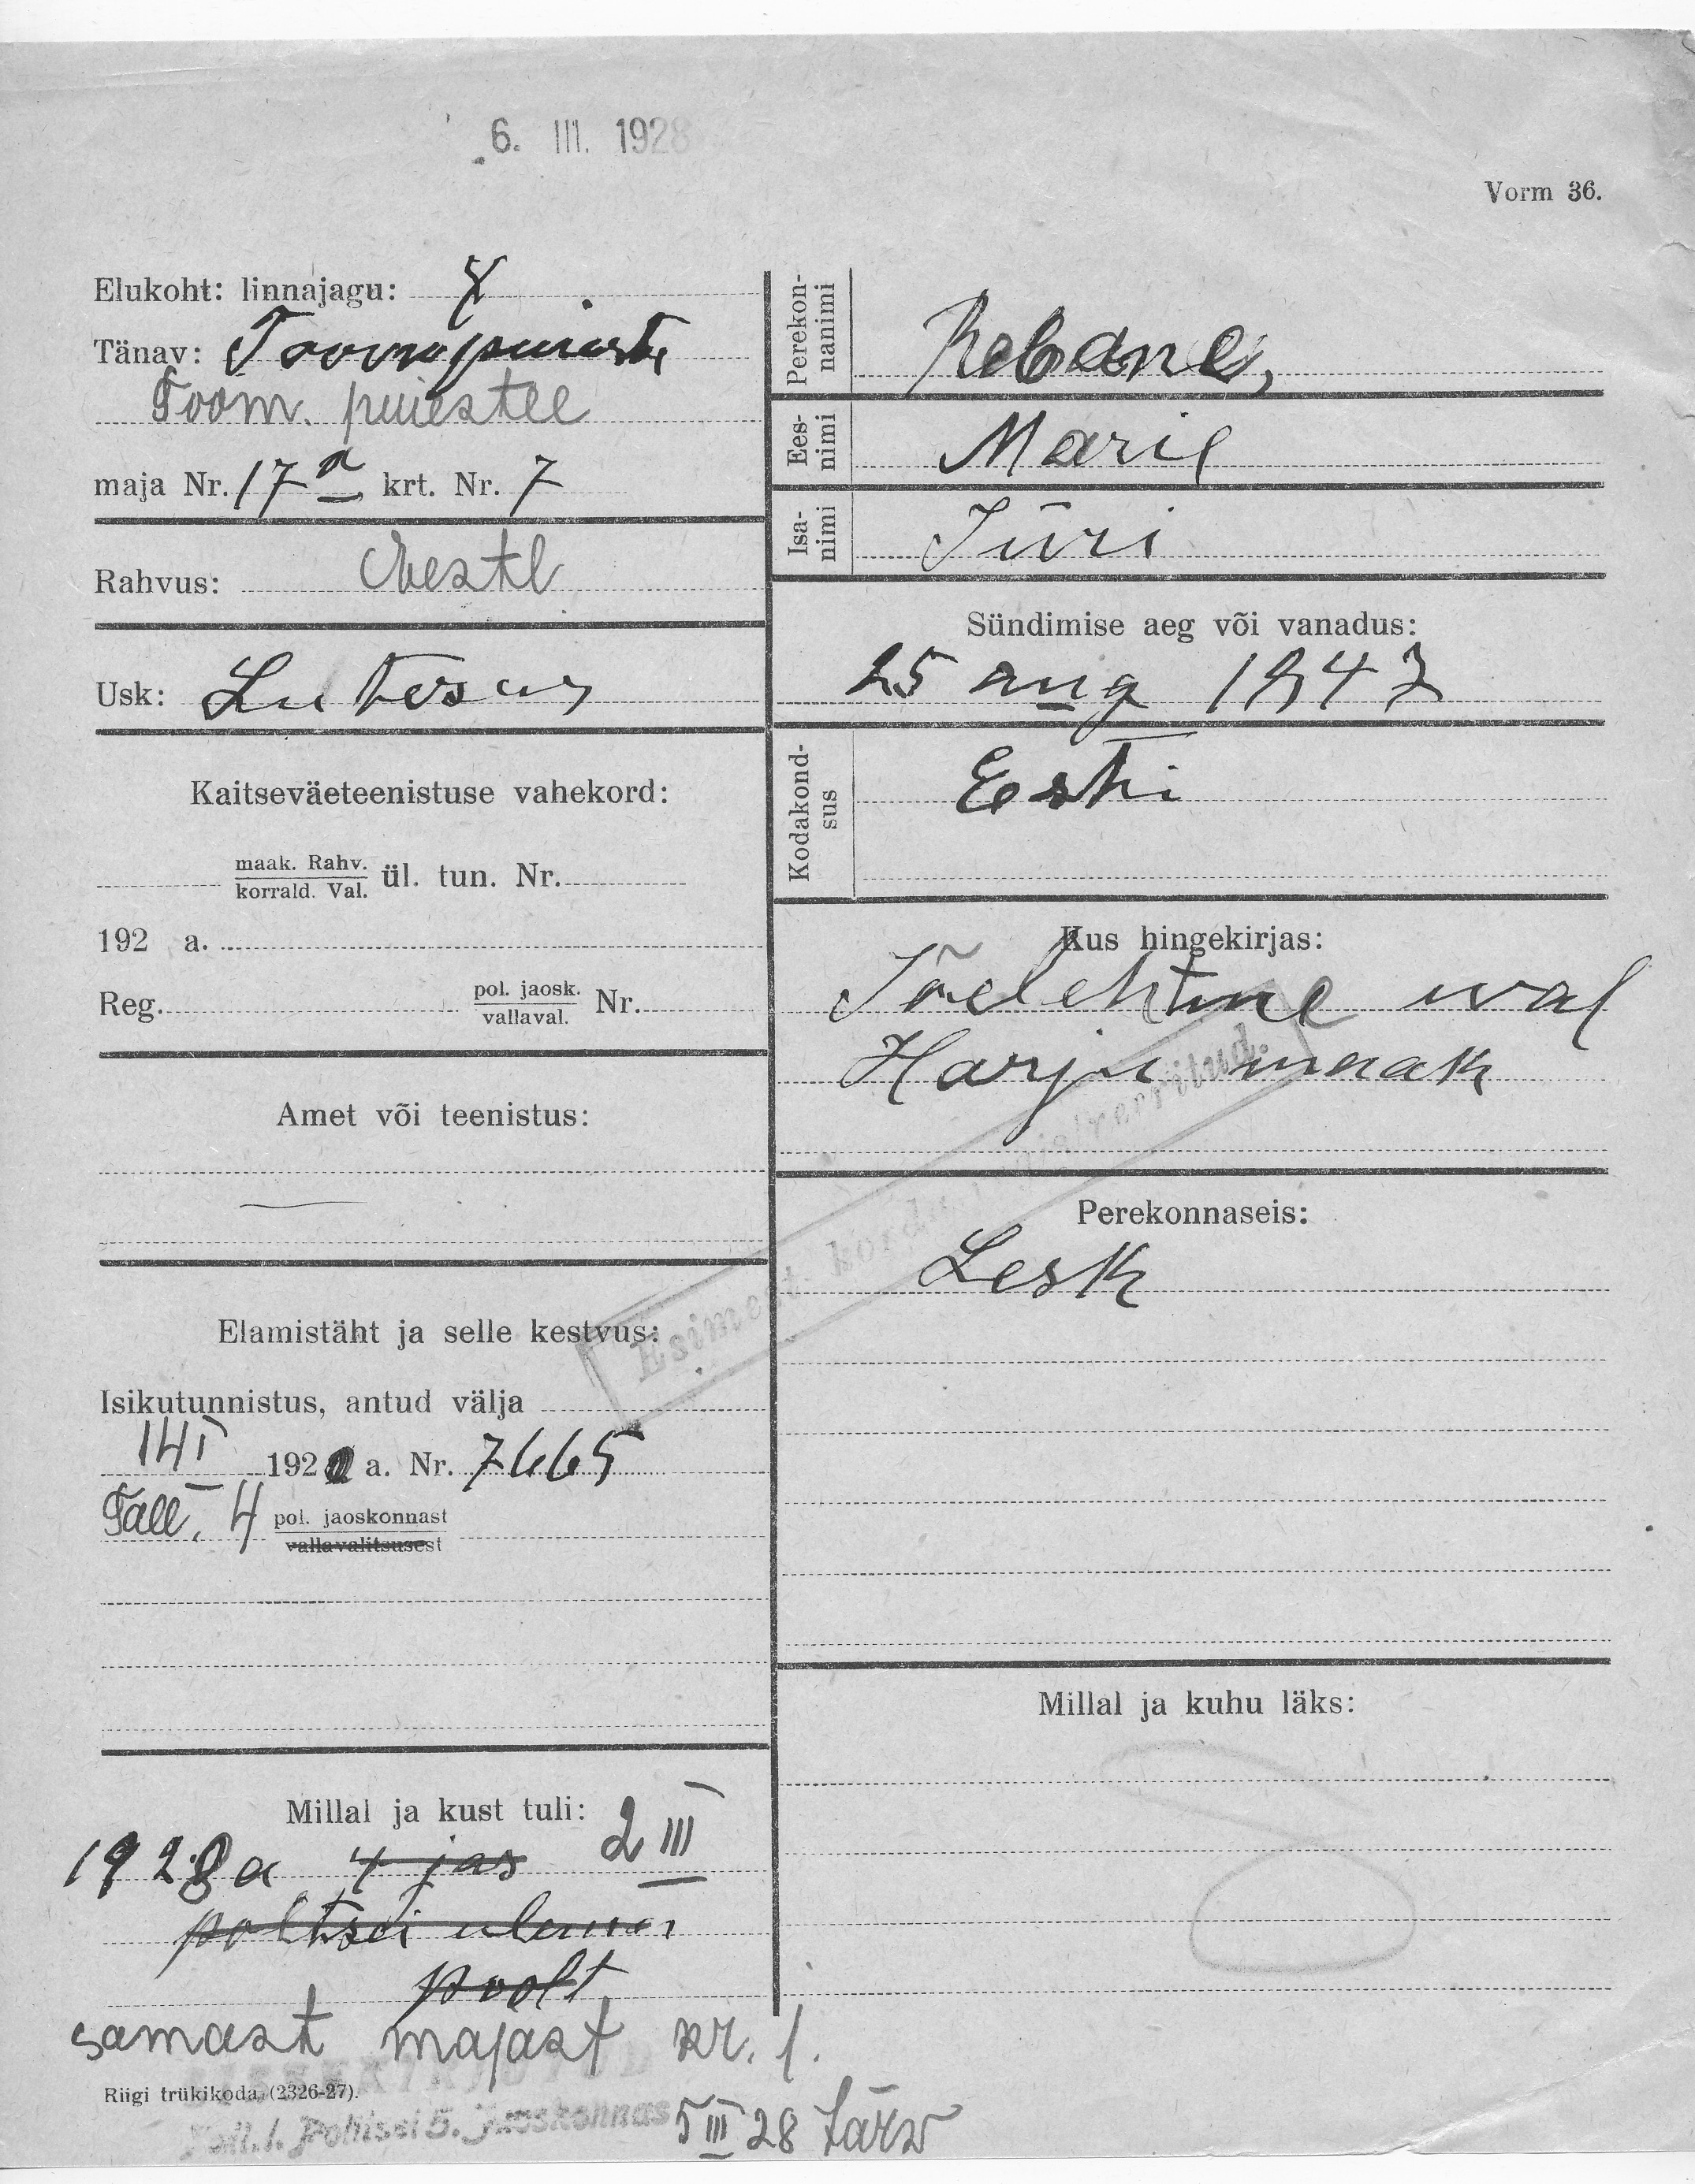 6. III. 1928
Vorm 36.
Elukoht: linnajagu:
Tänav: Toompuieste
Toom. puiestee
maja Nr. 17a krt. Nr. 7
Rahvus: Eestl
Usk: Luterus
Kaitseväeteenistuse vahekord:
maak. Rahv.
korrald. Val. ül. tun. Nr.
192 a.
Reg. pol. jaosk. Nr.
vallaval.
Amet või teenistus:
Elamistäht ja selle kestvus:
Isikutunnistus, antud välja
14 I 192 a. Nr. 7665
Tall. 4 pol. jaoskonnast
vallavalitsusest
Millal ja kust tuli:
1928 a 4 jas 2 III
politsei
poolt
samast majast kr. 1.
Riigi trükikoda, (2326-27).
Tall. l. Politsei 5. Jaoskonnas
5 III 28 Lärw
Perekon-
nanimi Rebane,
Ees-
nimi Marie
Isa-
nimi Jüri
Sündimise aeg või vanadus:
25 aug 1847
Kodakond-
sus Eesti
Kus hingekirjas:
Jõelehtme wal
Harju maak
Esimest korda registreeritud.
Perekonnaseis:
Lesk
Millal ja kuhu läks: